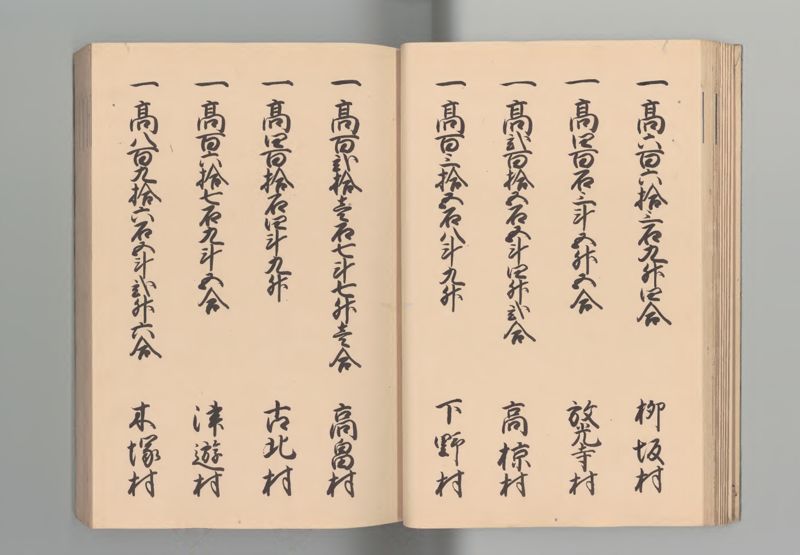 一高六百六拾三石九升四合 柳坂村
一高四百石三斗五升五合 放光寺村
一高弐百拾五石五斗四升弐合 高椋村
一高百三拾五石八斗九升 下野村
一高百弐拾壱石七斗七升壱合 高畠村
一高四百拾石四斗九升 古北村
一高百六拾七石九斗五合 津遊村
一高八百九拾六石五斗弐升六合 木塚村